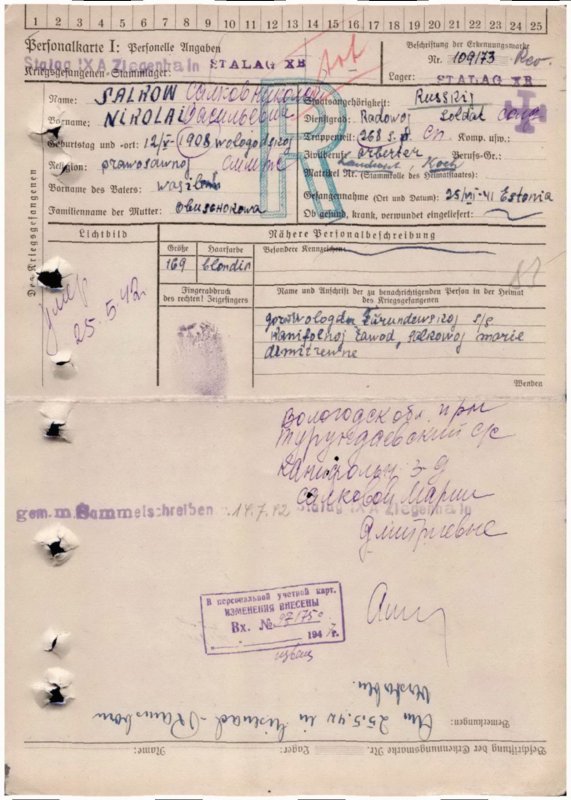 1 2 3 4 5 6 7 8 9 10 11 12 13 14 15 16 17 18 19 20 21 22 23 24 25
Personalkarte I: Personelle Angaben
Beschriftung der Erkennungsmarke
Stalag IX A Ziegenhain
STALAG XB
Nr. 109173
Kriegsgefangenen-Stammlager:
Lager: STALAG XB
Des Kriegsgefangenen
Name: SALKOW Салков Николай
Staatsangehörigkeit: Russkij
Vorname: NIKOLAI Васильевич
Dienstgrad: Radowoj Soldat
Geburtstag und -ort: 12/V 1908 wologodskoj
Truppenteil: 268 s.p. Сп Komp. usw.:
Religion: prawoslawnoj
Zivilberuf: arbeter Berufs-Gr.:
Matrikel Nr. (Stammrolle des Heimatstaates)
Landwirt, Koch
Vorname des Vaters:
Gefangennahme (Ort und Datum): 25/VII-41 Estonia
Familienname der Mutter: Obuschokowa
Ob gesund, krank, verwundet eingeliefert:
Lichtbild
Nähere Personalbeschreibung
Größe
Haarfarbe
Besondere Kennzeichen:
169 blondin
умер
25.5.42
Fingerabdruck
des rechten! Zeigefingers
Name und Anschrift der zu benachrichtigenden Person in der Heimat
des Kriegsgefangenen
gor Wologda Turundewskoj s/s
Kanifolnoj zawod, Salkowoj marie
dmitrewne
Wenden
Вологодск обл. при
Турундаевский с/с
Канифольн. з-д
Салковой Марии
Дмитриевне
gem. m. Sammelschreiben v. 17.7.42 Stalag IX A Ziegenhain
В персональной учетной карт.
ИЗМЕНЕНИЯ ВНЕСЕНЫ
Вх. №
194 г.
Bemerkungen: Am 25.5.42 in
verstorben.
Beschriftung der Erkennungsmarke Nr.
Lager:
Name: